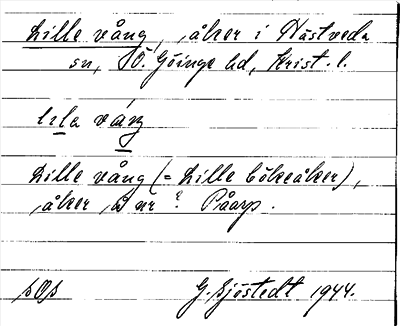 Lille vång, åker i Hästveda
sn, Ö. Göinge hd, Krist. l.
lɩla våŋ
Lille vång (= Lille bökeåker),
åker å nr ? Påarp.
G. Sjöstedt 1944.